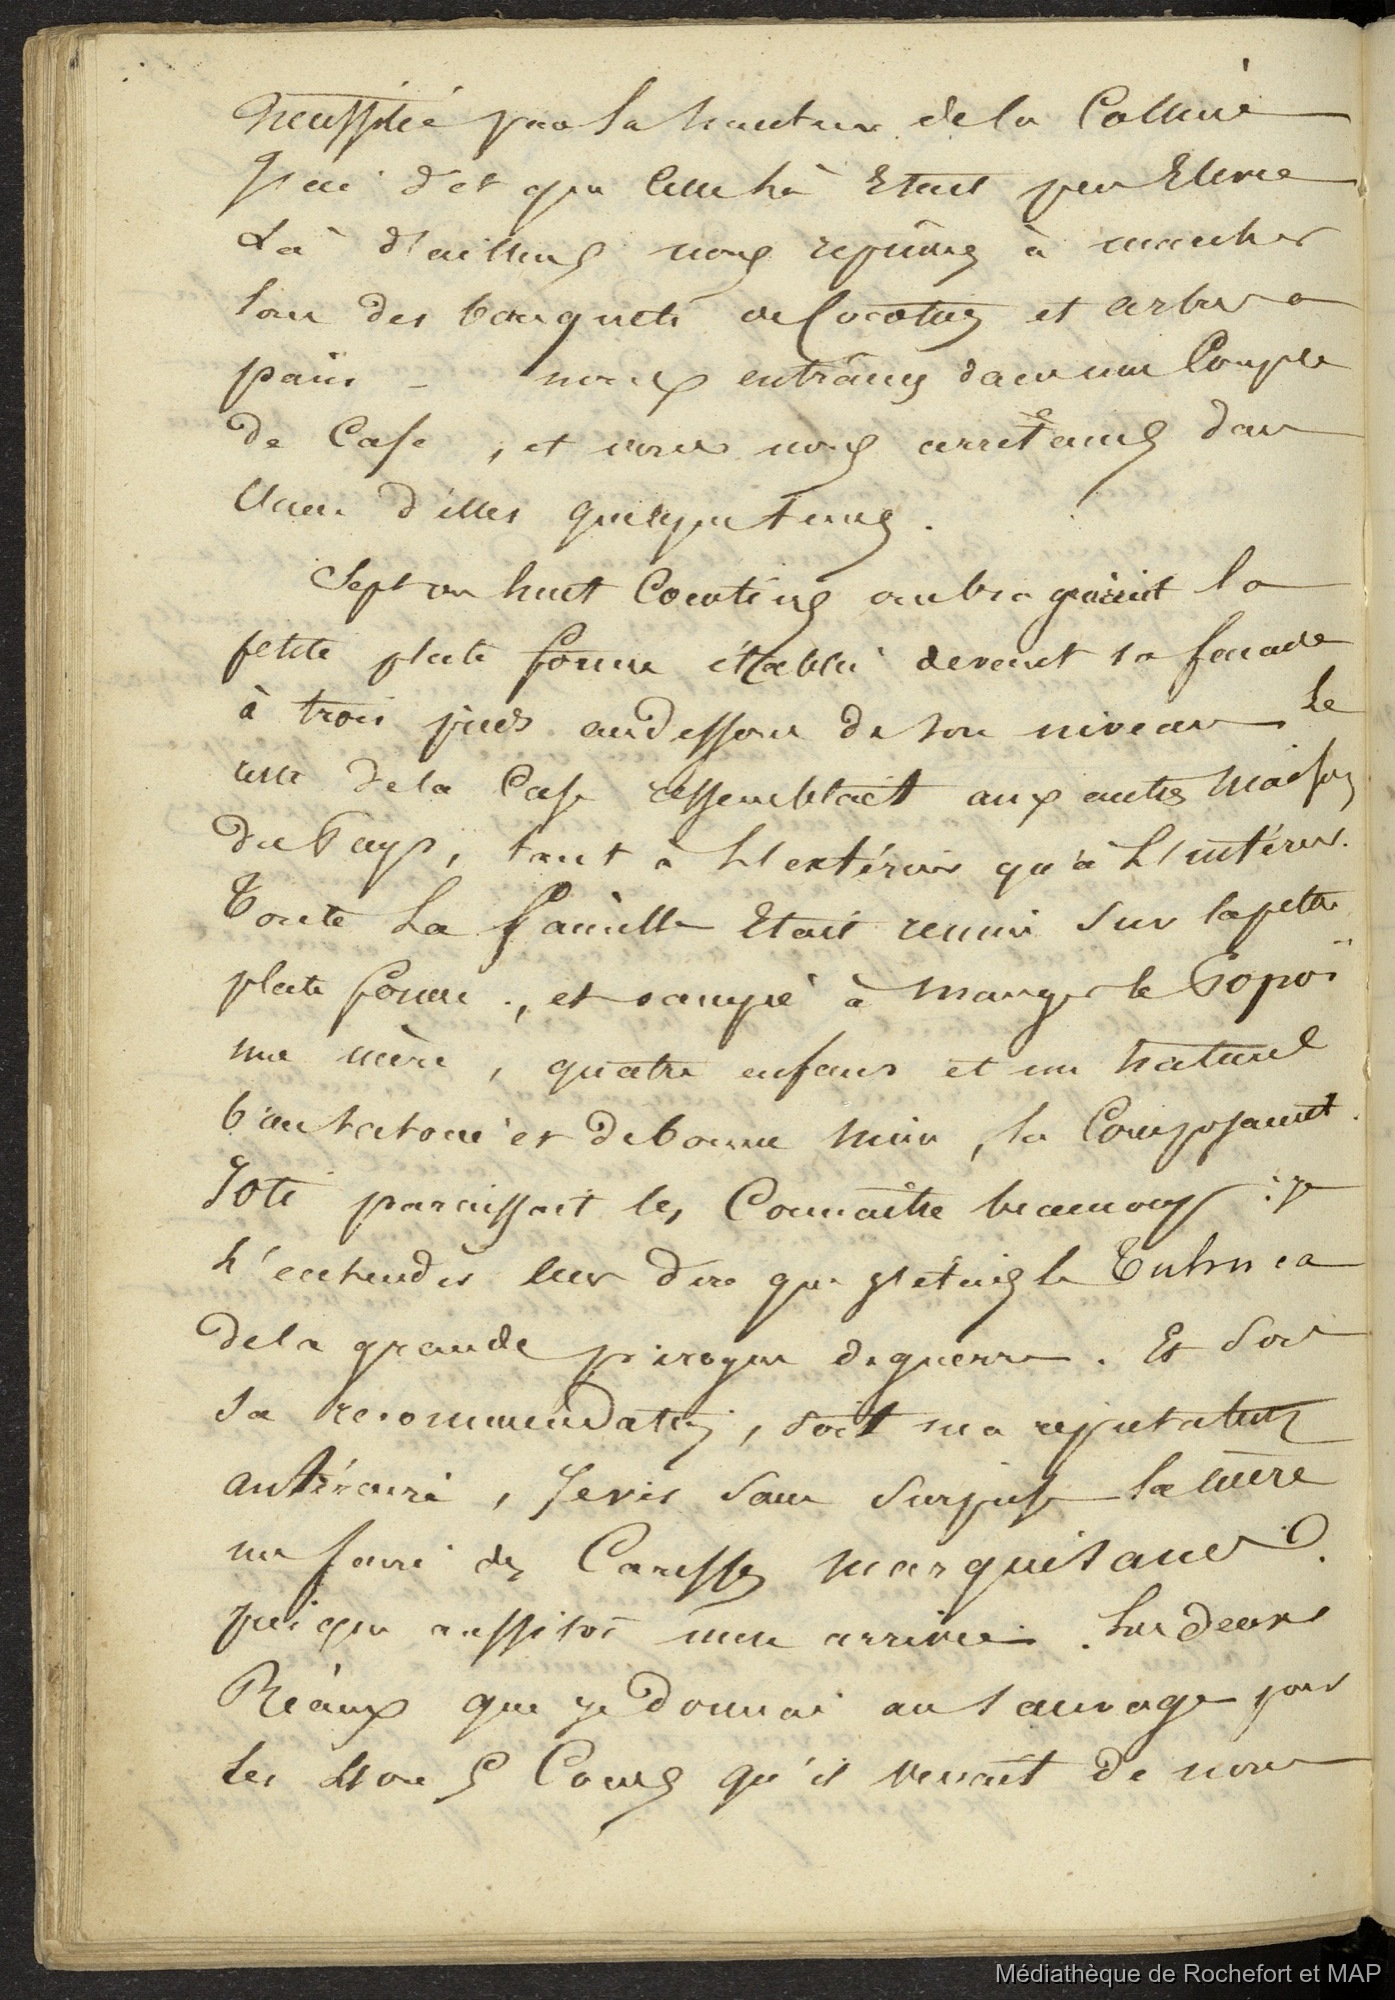 par la hauteur de la Colline
que celle là Etait peu Elevée
Là d'ailleurs nous reprimes à marcher
sous des bouquets de Cocotiers et arbre a
pain - nous entrâmes dans une Couple
de Case, et nous nous arretames dans
Une d'elles quelques tems.
Sept ou huit Cocotiers ombrageaient la
petite plate forme établie devant sa facade
à trois pieds audessous de son niveau. Le
reste de la Case ressemblait aux autres Maisons
du Pays, tant à L'extérieur qu'à L'intérieur.
Toute La famille Etait reunie Sur la petite
plate forme, et occupée à Manger le Popoï
une mère, quatre enfans et un naturel
bien tatoué et de bonne Mine, la Composaient.
paraissait les Connaitre beaucoup : je
L'entendis leur dire que j'étais le
de la grande pirogue de guerre. Et Soit
Sa recommendation, soit ma reputation
antérieure, Je vis sans Surprise la mère
me faire des Caresses Marquisanes
presque aussitôt mon arrivée. Les deux
Réaux que je donnai au sauvage pour
Les Cocos qu'il venait de nous
Médiathèque de Rochefort et MAP